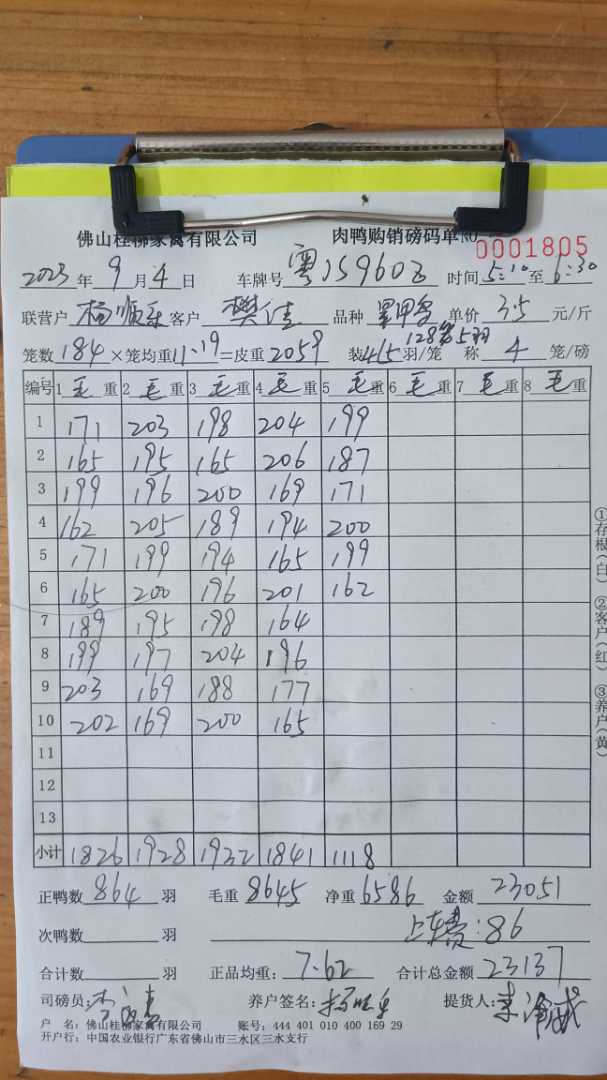 佛山桂柳家禽有限公司 肉鸭购销磅码单 NO 0001805
2023年9月4日 车牌号 粤J59602 时间 5:10 至 6:30
联营户 杨顺 客户 樊佳 品种 单价 3.5 元/斤
128笼5羽
笼数 184 ×笼均重 11.19 =皮重 2059 装 4/5 羽/笼 称 4 笼/磅
编号 1 毛重 2 毛重 3 毛重 4 毛重 5 毛重 6 毛重 7 毛重 8 毛重
1 171 203 198 204 199
2 165 195 165 206 187
3 199 196 200 169 171
4 162 205 189 194 200
5 171 199 194 165 199
6 165 200 196 201 162
7 189 195 198 164
8 199 197 204 196
9 203 169 188 177
10 202 169 200 165
11
12
13
小计 1826 1928 1932 1841 1118
正鸭数 864 羽 毛重 8645 净重 6586 金额 23051
次鸭数 羽 上车费:86
合计数 羽 正品均重: 7.62 合计总金额 23137
司磅员: 养户签名: 提货人:
户 名: 佛山桂柳家禽有限公司 账号: 444 401 010 400 169 29
开户行: 中国农业银行广东省佛山市三水区三水支行
①存根(白) ②客户(红) ③养户(黄)